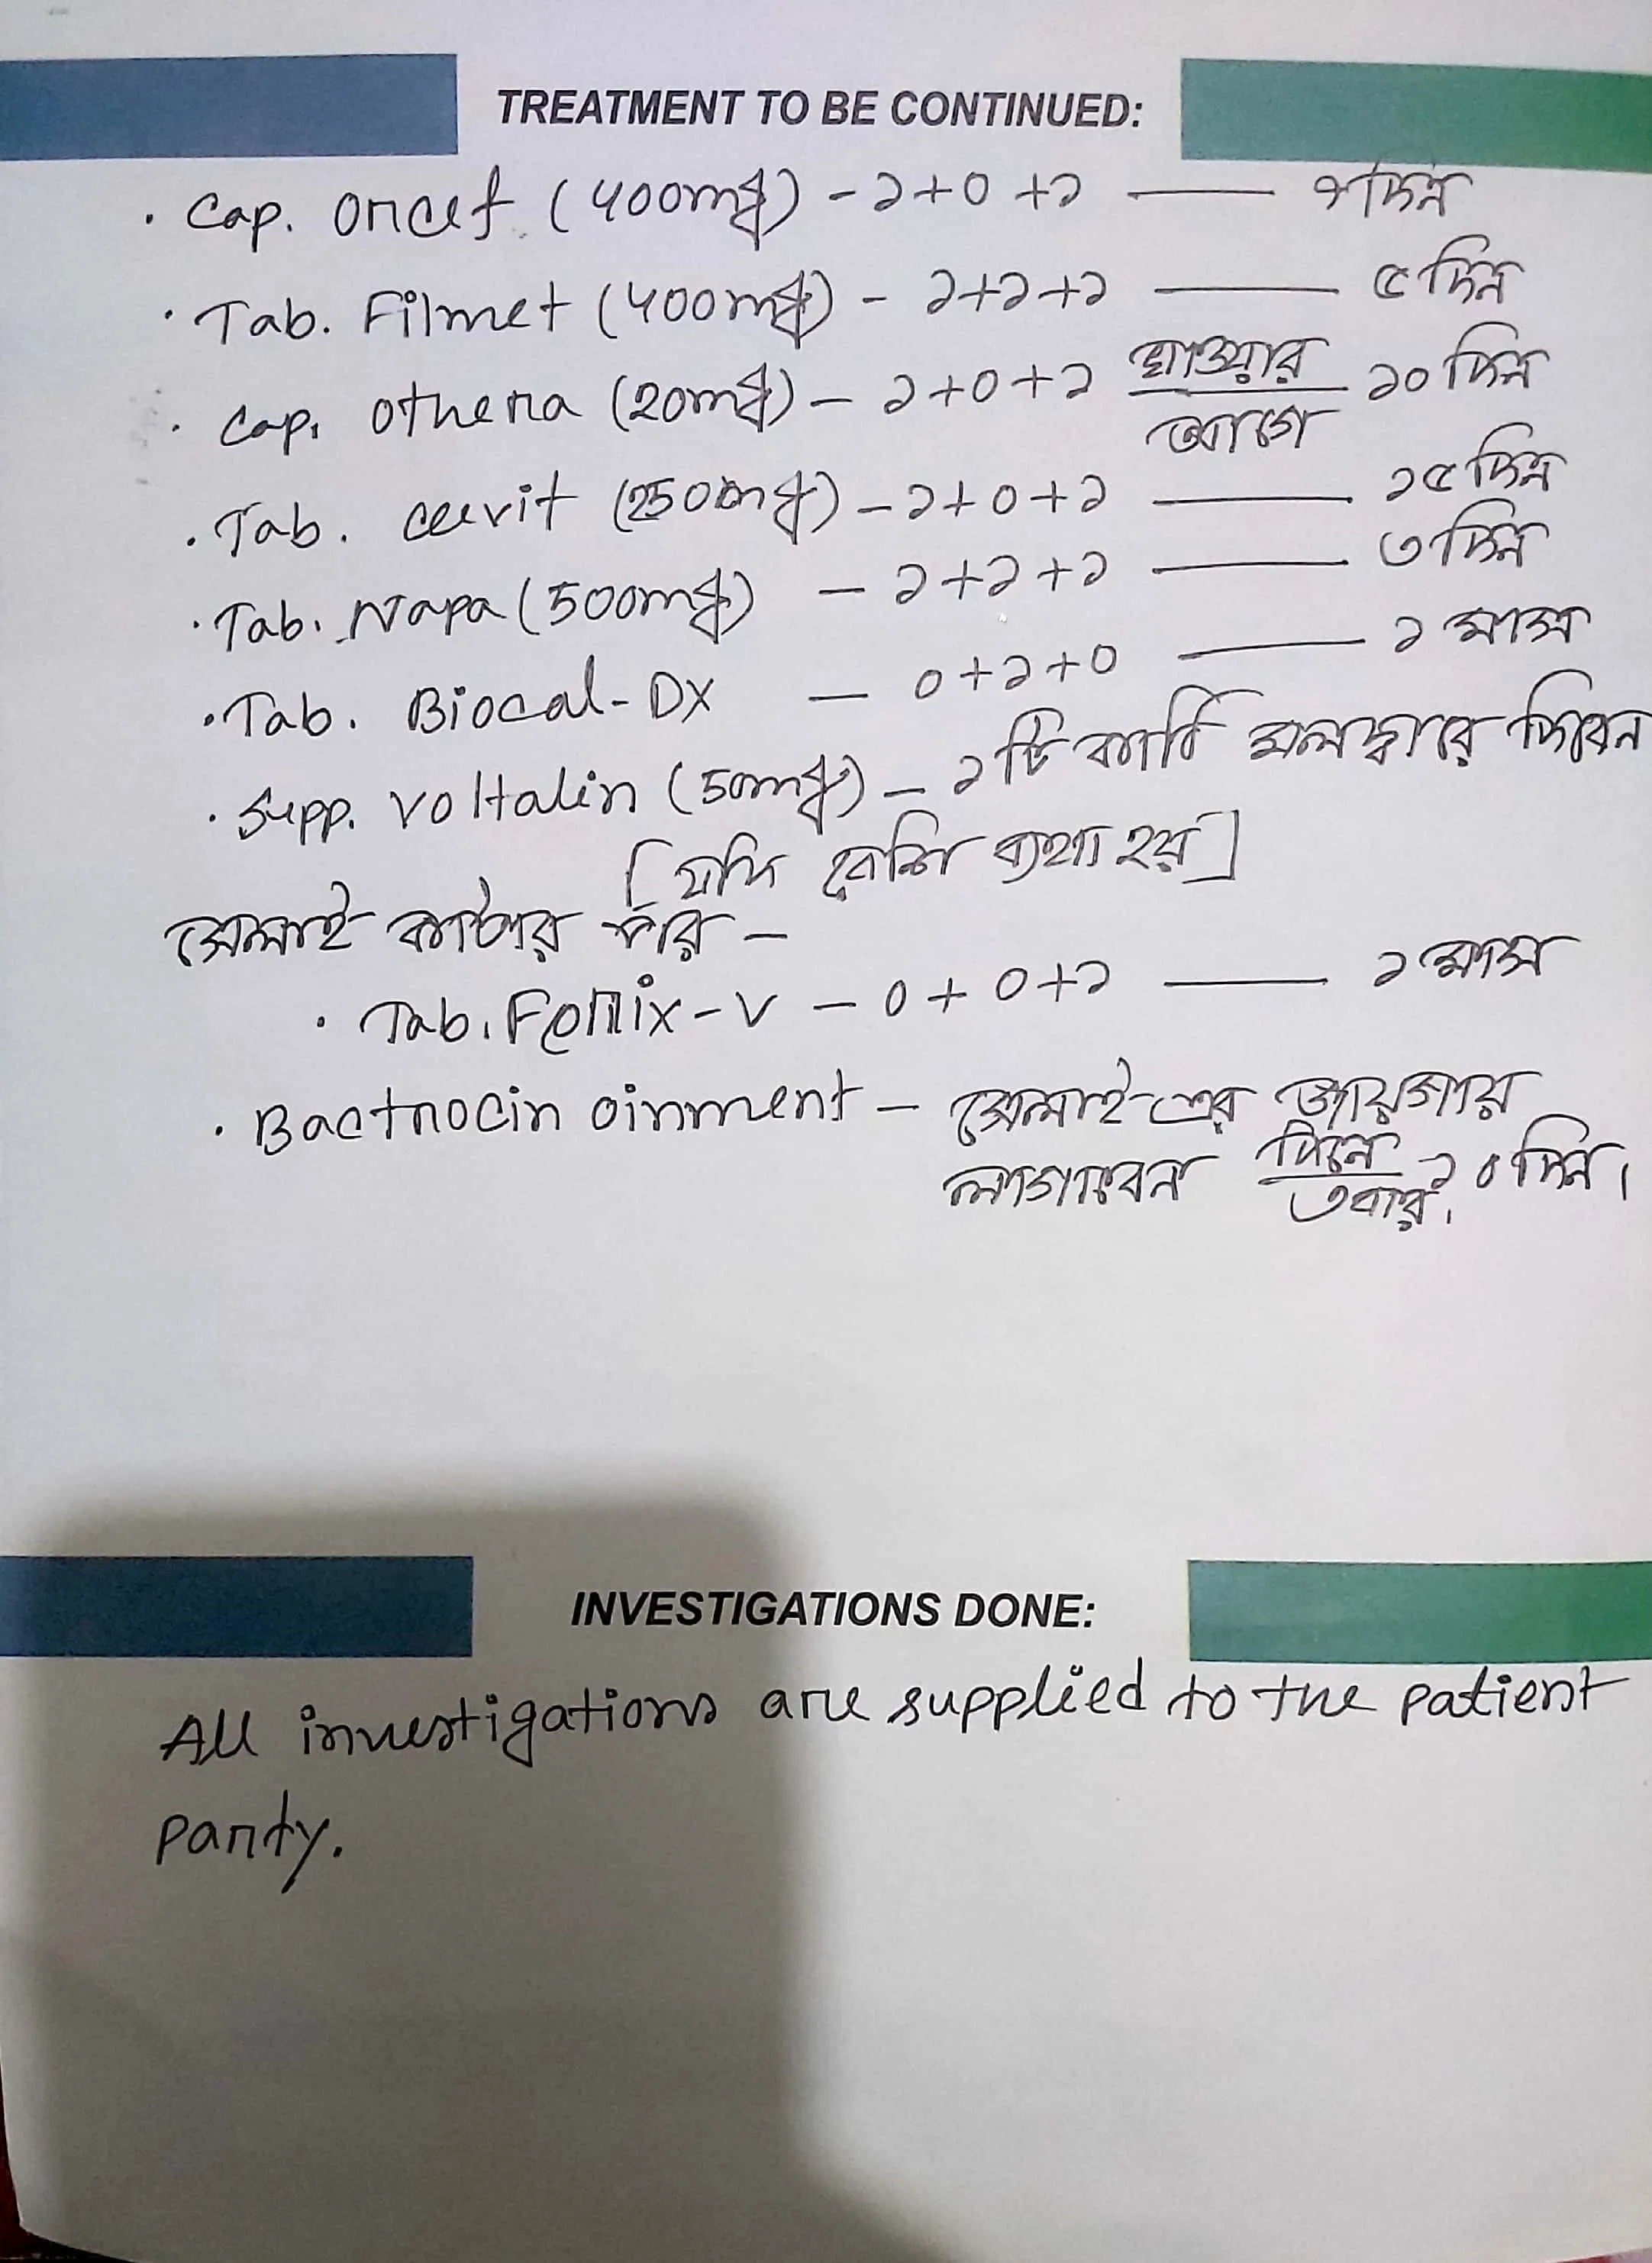 TREATMENT TO BE CONTINUED:
· Cap. Orcef (400mg) - ১+০+১ — ৭দিন
· Tab. Filmet (400mg) - ১+১+১ — ৫দিন
· Cap. Othera (20mg) - ১+০+১ খাওয়ার আগে ১০দিন
· Tab. Ceevit (250mg) - ১+০+১ — ১৫দিন
· Tab. Napa (500mg) - ১+১+১ — ৩দিন
· Tab. Biocal-DX - ০+১+০ — ১মাস
· Supp. Voltalin (50mg) - ১টি কাঠি মলদ্বারে দিবেন
[যদি বেশি ব্যথা হয়]
সেলাই কাটার পর -
· Tab. Fenix-V - ০+০+১ — ১মাস
· Bactrocin oinment - সেলাই-এর জায়গায়
লাগাবেন দিনে ৩বার ১০দিন।
INVESTIGATIONS DONE:
All investigations are supplied to the patient
party.